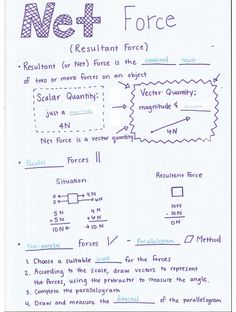 Net Force
(Resultant Force)
• Resultant (or Net) Force is the combined result
of two or more forces on an object
Scalar Quantity:
just a magnitude
4N
Vector Quantity:
magnitude & direction
4N
Net Force is a vector quantity
• Parallel Forces ||
Situation
Resultant Force
5N 4N
5N 6N
5N 4N
+ 5N + 6N
10N 10N
10N
- 10N
0N
• Non-parallel Forces - Parallelogram Method
1. Choose a suitable scale for the forces
2. According to the scale, draw vectors to represent
the forces, using the protractor to measure the angle.
3. Complete the parallelogram
4. Draw and measure the diagonal of the parallelogram